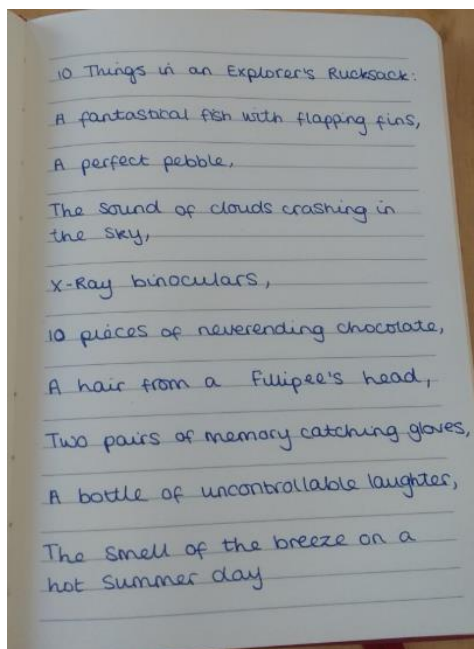 10 Things in an Explorer's Rucksack:
A fantastical fish with flapping fins,
A perfect pebble,
The sound of clouds crashing in
the sky,
X-Ray binoculars,
10 pieces of neverending chocolate,
A hair from a Fillipee's head,
Two pairs of memory catching gloves,
A bottle of uncontrollable laughter,
The smell of the breeze on a
hot summer day